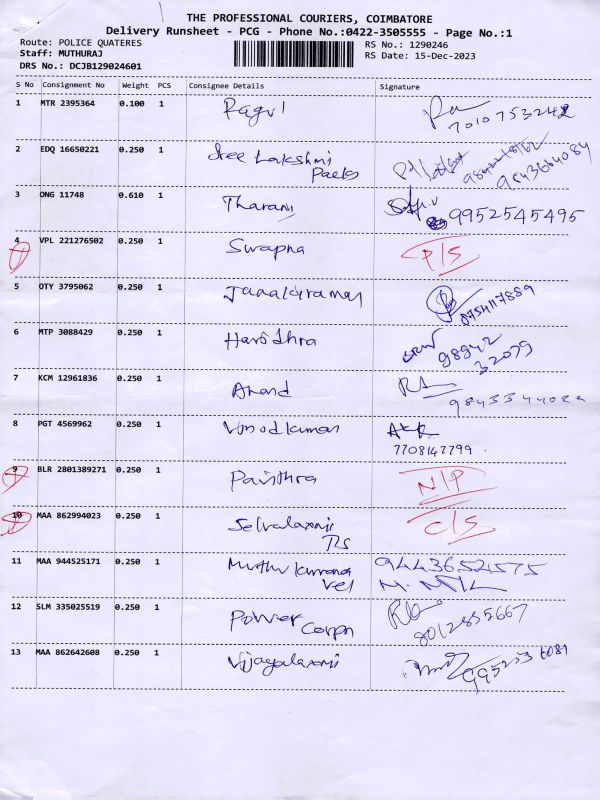 THE PROFESSIONAL COURIERS, COIMBATORE
Delivery Runsheet - PCG - Phone No.:0422-3505555 - Page No.:1
Route: POLICE QUATERES RS No.: 1290246
Staff: MUTHURAJ RS Date: 15-Dec-2023
DRS No.: DCJB129024601
S No Consignment No Weight PCS Consignee Details Signature
1 MTR 2395364 0.100 1 Ragul
2 EDQ 16650221 0.250 1 Sree Lakshmi
9843664084
3 ONG 11748 0.610 1 Tharani 9952545495
4 VPL 221276502 0.250 1 Swapna P/S
5 OTY 3795062 0.250 1 8754117889
6 MTP 3088429 0.250 1 98942
32079
7 KCM 12961836 0.250 1 Anand
8 PGT 4569962 0.250 1 Vinodkumar
7708147799
9 BLR 2801389271 0.250 1 Pavithra N/P
10 MAA 862994023 0.250 1 C/S
11 MAA 944525171 0.250 1 9443652575
Vel
12 SLM 335025519 0.250 1 Power
Corpn 8012855667
13 MAA 862642608 0.250 1 Vijayalaxmi